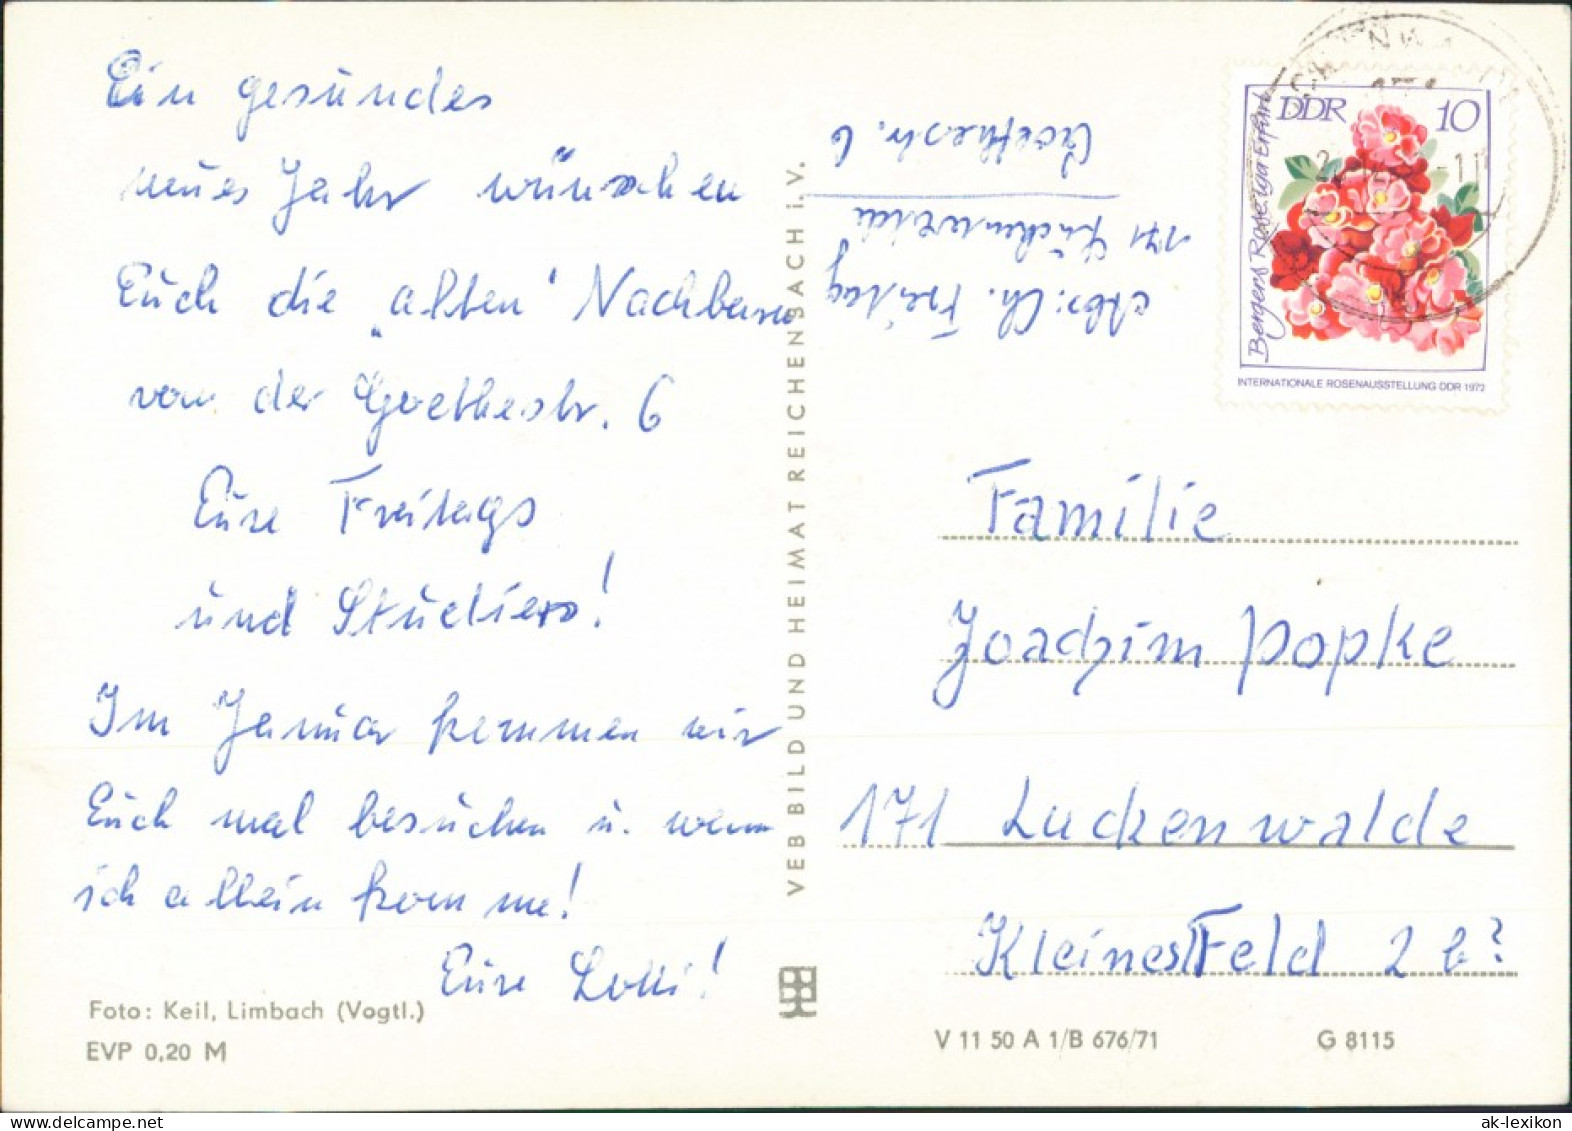 Ein gesundes
neues Jahr wünschen
Euch die „alten" Nachbarn
von der Goethestr. 6
Eure Freitags
und Studiers!
Im Januar kommen wir
Euch mal besuchen u. wenn
ich allein komme!
Eure Lotti!
Foto: Keil, Limbach (Vogtl.)
EVP 0,20 M
VEB BILD UND HEIMAT REICHENBACH i. V.
Abs: Ch. Freitag
171 Luckenwalde
Goethestr. 6
DDR 10
Bergers Rose, iga Erfurt
INTERNATIONALE ROSENAUSSTELLUNG DDR 1972
Familie
Joachim Popke
171 Luckenwalde
Kleines Feld 2 b?
V 11 50 A 1/B 676/71
G 8115
ak-lexikon